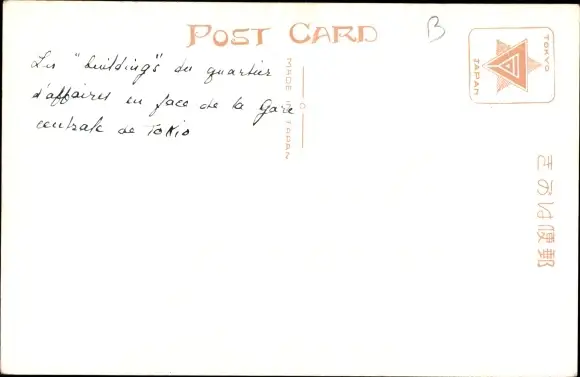 POST CARD
B
Les "building's du quartier
d'affaires en face de la Gare
centrale de Tokio
MADE IN JAPAN
TOKYO
JAPAN
きかは便郵